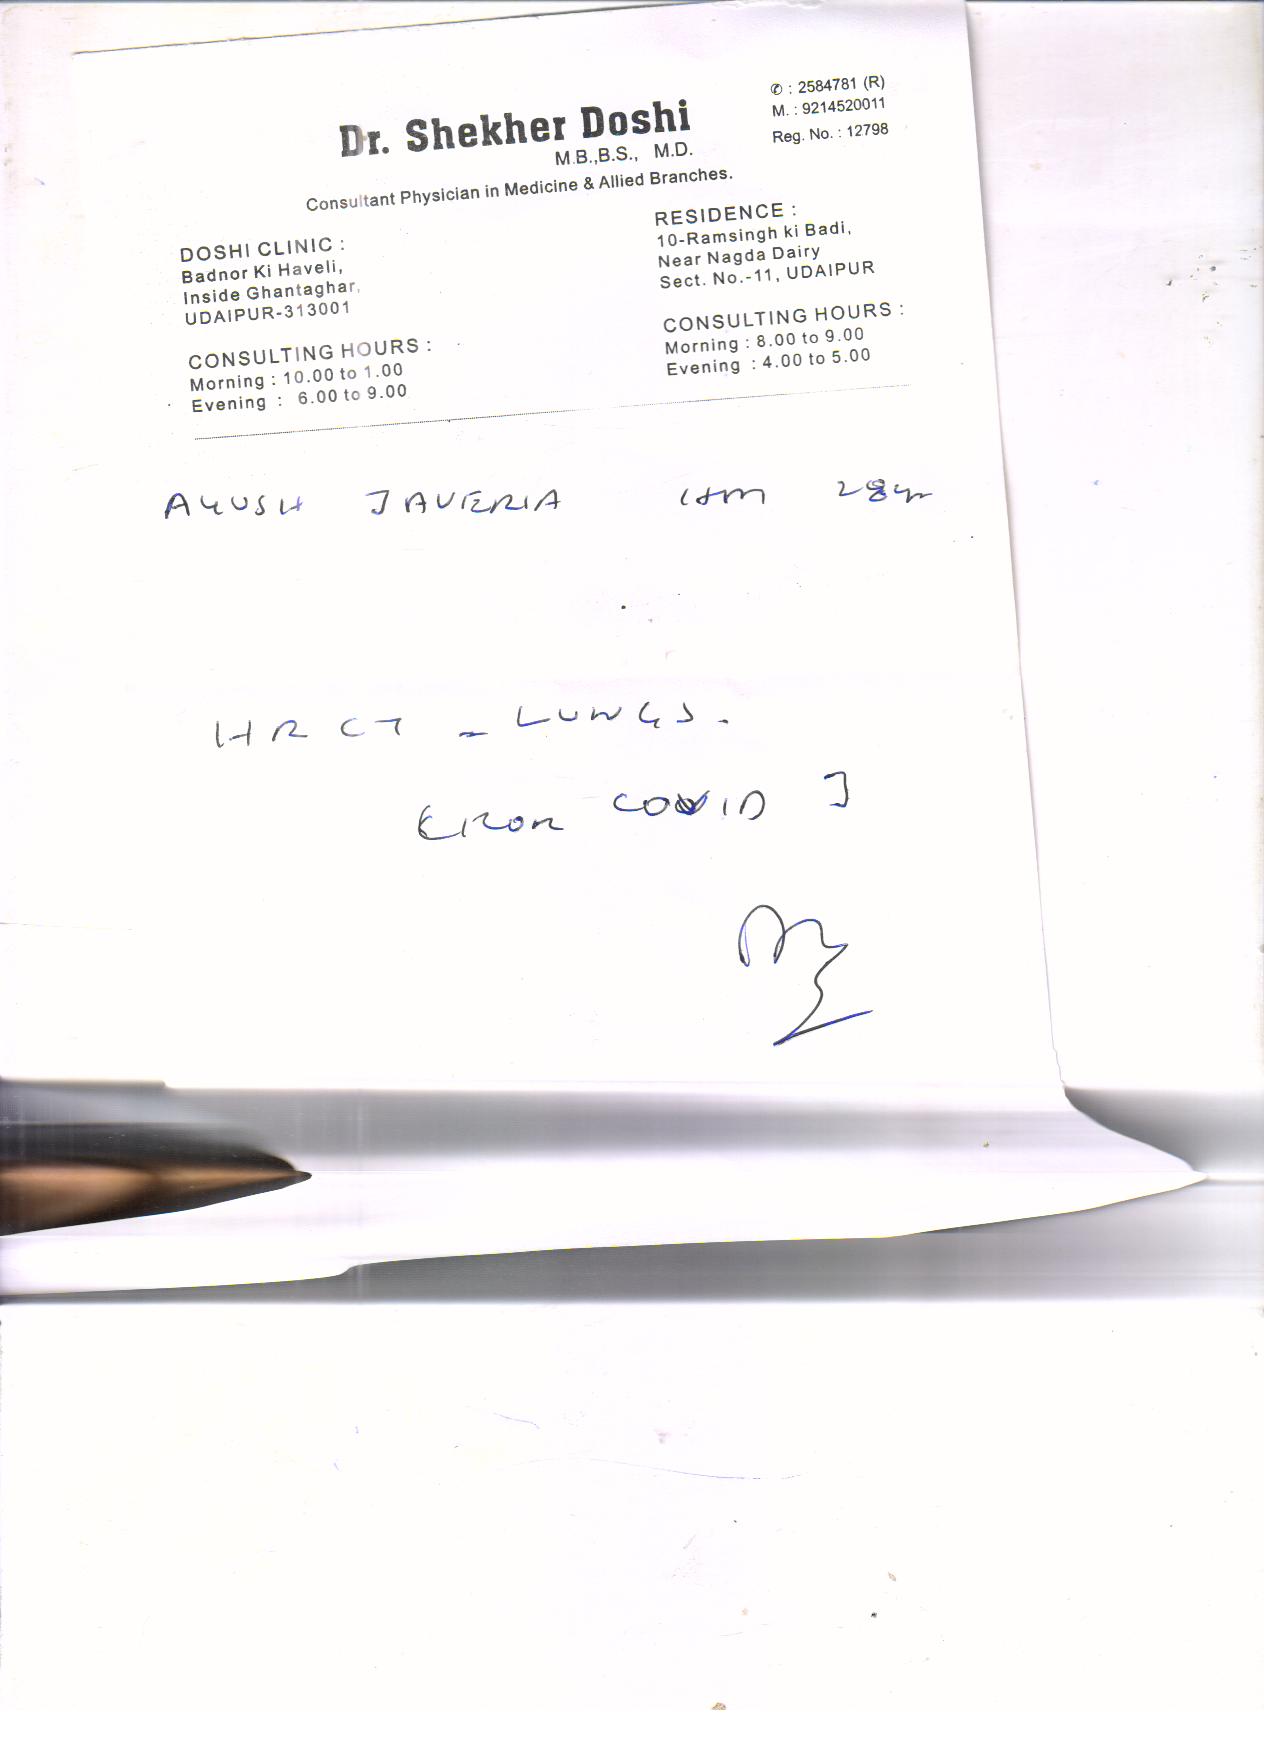 ✆ : 2584781 (R)
M. : 9214520011
Reg. No. : 12798
Dr. Shekher Doshi
M.B.,B.S., M.D.
Consultant Physician in Medicine & Allied Branches.
DOSHI CLINIC :
Badnor Ki Haveli,
Inside Ghantaghar,
UDAIPUR-313001
CONSULTING HOURS :
Morning : 10.00 to 1.00
Evening : 6.00 to 9.00
RESIDENCE :
10-Ramsingh ki Badi,
Near Nagda Dairy
Sect. No.-11, UDAIPUR
CONSULTING HOURS :
Morning : 8.00 to 9.00
Evening : 4.00 to 5.00
AYUSH JAVERIA 28yr
HRCT - LUNGS.
COVID ]